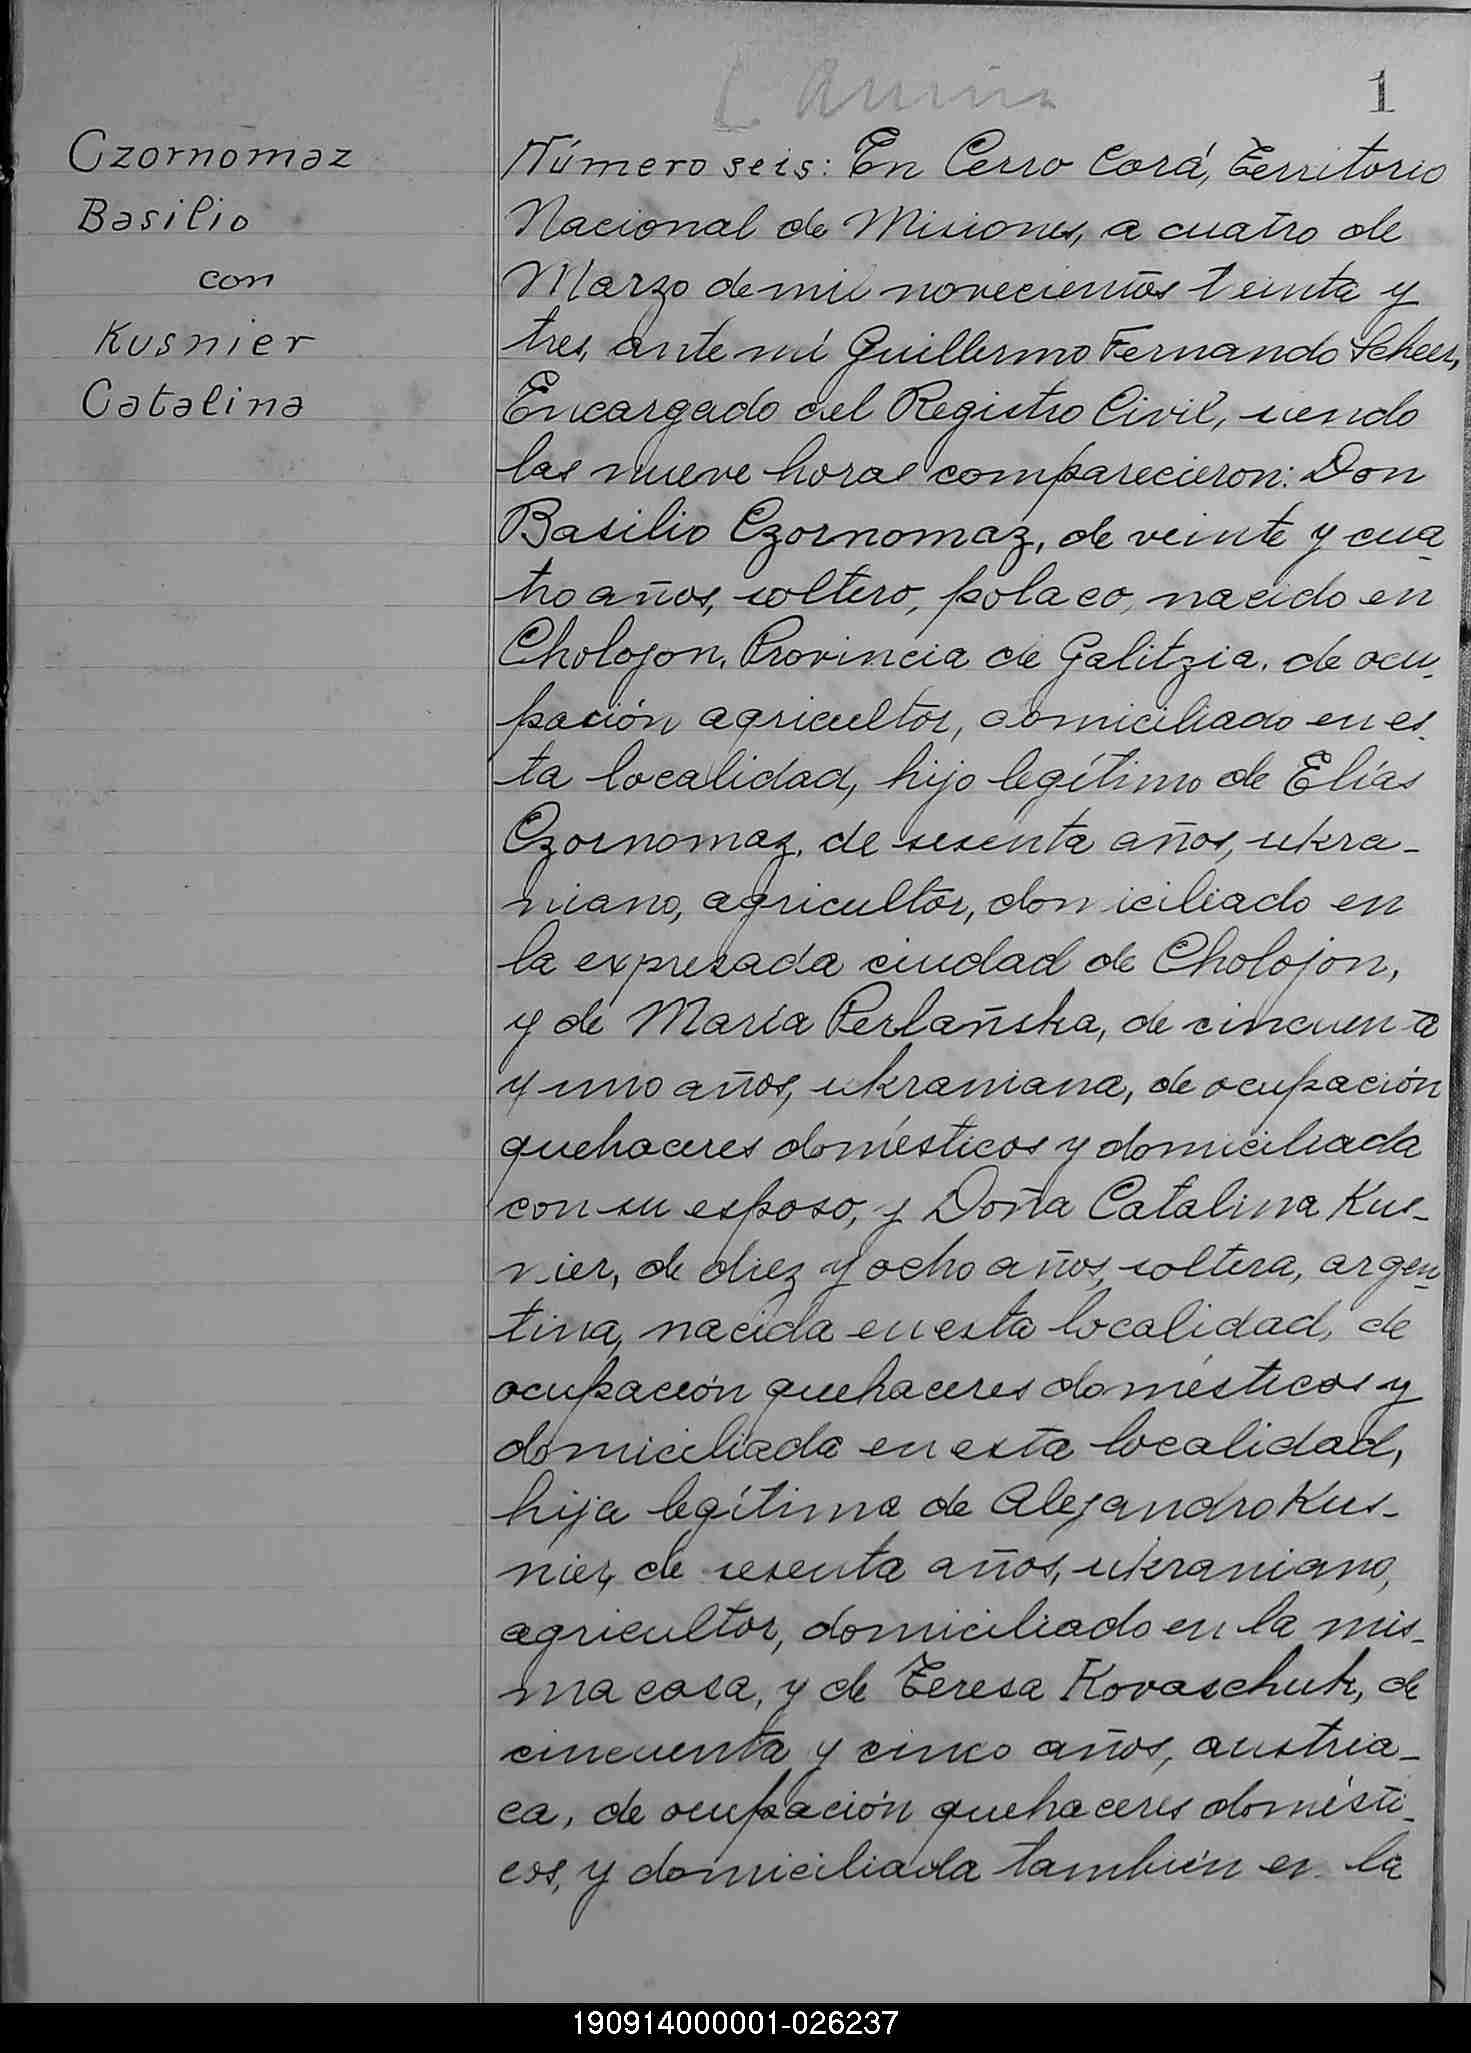 1
Czornomaz
Basilio
con
Kusnier
Catalina
Número seis: En Cerro Corá, Territorio
Nacional de Misiones, a cuatro de
Marzo de mil novecientos treinta y
tres, ante mí Guillermo Fernando Scheer,
Encargado del Registro Civil, siendo
las nueve horas comparecieron: Don
Basilio Czornomaz, de veinte y cua-
tro años, soltero, polaco, nacido en
Cholojon, Provincia de Galitzia, de ocu-
pación agricultor, domiciliado en es-
ta localidad, hijo legítimo de Elías
Czornomaz, de sesenta años, ukra-
niano, agricultor, domiciliado en
la expresada ciudad de Cholojon,
y de María Perlañska, de cincuenta
y uno años, ukraniana, de ocupación
quehaceres domésticos y domiciliada
con su esposo, y Doña Catalina Kus-
nier, de diez y ocho años, soltera, argen-
tina, nacida en esta localidad, de
ocupación quehaceres domésticos y
domiciliada en esta localidad,
hija legítima de Alejandro Kus-
nier, de sesenta años, ukraniano,
agricultor, domiciliado en la mis-
ma casa, y de Teresa Kovaschuk, de
cincuenta y cinco años, austria-
ca, de ocupación quehaceres domésti-
cos, y domiciliada también en la
190914000001-026237